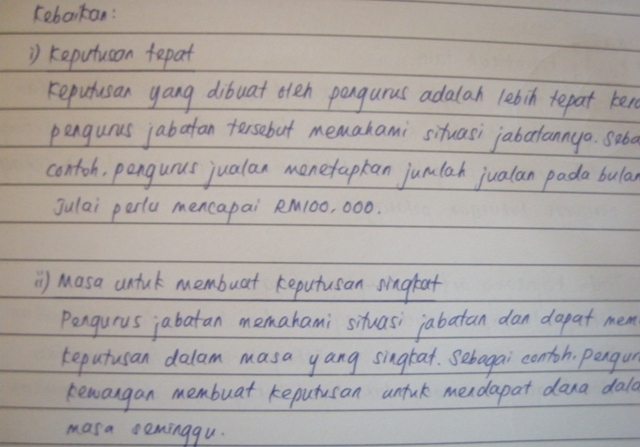 Kebaikan:
i) Keputusan tepat
Keputusan yang dibuat oleh pengurus adalah lebih tepat ker
pengurus jabatan tersebut memahami situasi jabatannya. Seba
contoh, pengurus jualan menetapkan jumlah jualan pada bulan
Julai perlu mencapai RM100,000.
ii) Masa untuk membuat keputusan singkat
Pengurus jabatan memahami situasi jabatan dan dapat mem
keputusan dalam masa yang singkat. Sebagai contoh, pengur
kewangan membuat keputusan untuk mendapat dana dala
masa seminggu.